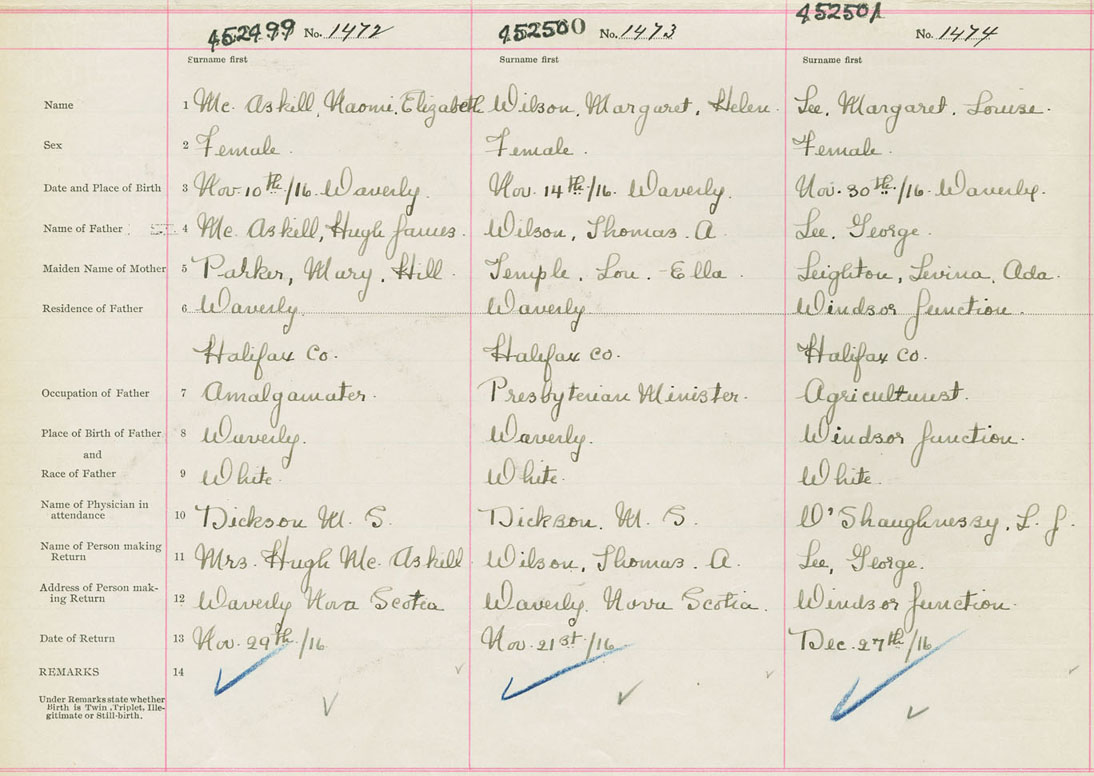 452499 No. 1472 452500 No. 1473 452501 No. 1474
Surname first Surname first Surname first
Name 1 Mc. Askill, Naomi, Elizabeth Wilson, Margaret, Helen. Lee, Margaret, Louise.
Sex 2 Female. Female. Female.
Date and Place of Birth 3 Nov. 10th/16 Waverly. Nov. 14th/16. Waverly. Nov. 30th/16 Waverly.
Name of Father 4 Mc. Askill, Hugh James. Wilson, Thomas. A. Lee, George.
Maiden Name of Mother 5 Parker, Mary, Hill. Temple, Lou. Ella. Leighton, Levina, Ada.
Residence of Father 6 Waverly Waverly Windsor Junction.
Halifax Co. Halifax Co. Halifax Co.
Occupation of Father 7 Amalgamater. Presbyterian Minister. Agriculturist.
Place of Birth of Father 8 Waverly. Waverly. Windsor Junction.
and
Race of Father 9 White. White. White.
Name of Physician in
attendance 10 Dickson M. S. Dickson, M. S. O'Shaughnessy, L. J.
Name of Person making
Return 11 Mrs. Hugh Mc. Askill Wilson, Thomas. A. Lee, George.
Address of Person mak-
ing Return 12 Waverly Nova Scotia Waverly. Nova Scotia. Windsor Junction.
Date of Return 13 Nov. 29th/16 Nov. 21st/16 Dec. 27th/16
REMARKS 14
Under Remarks state whether
Birth is Twin, Triplet, Ille-
gitimate or Still-birth.